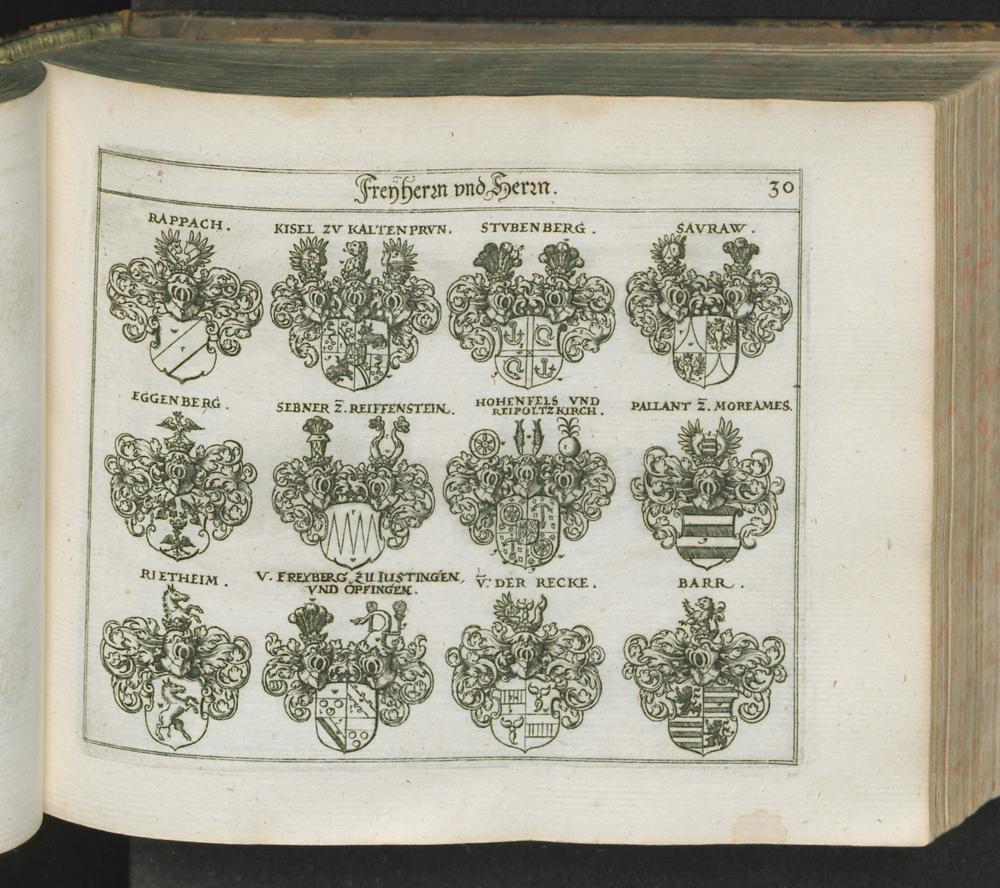 Freyherrn vnd Herrn.
30
RAPPACH.
KISEL ZV KALTENPRVN.
STVBENBERG.
SAVRAW.
EGGENBERG.
SEBNER Z̄. REIFFENSTEIN.
HOHENFELS VND
REIPOLTZKIRCH.
PALLANT Z̄. MOREAMES.
RIETHEIM.
V. FREYBERG, ZU IUSTINGEN,
VND ÖPFINGEN.
V̄. DER RECKE.
BARR.